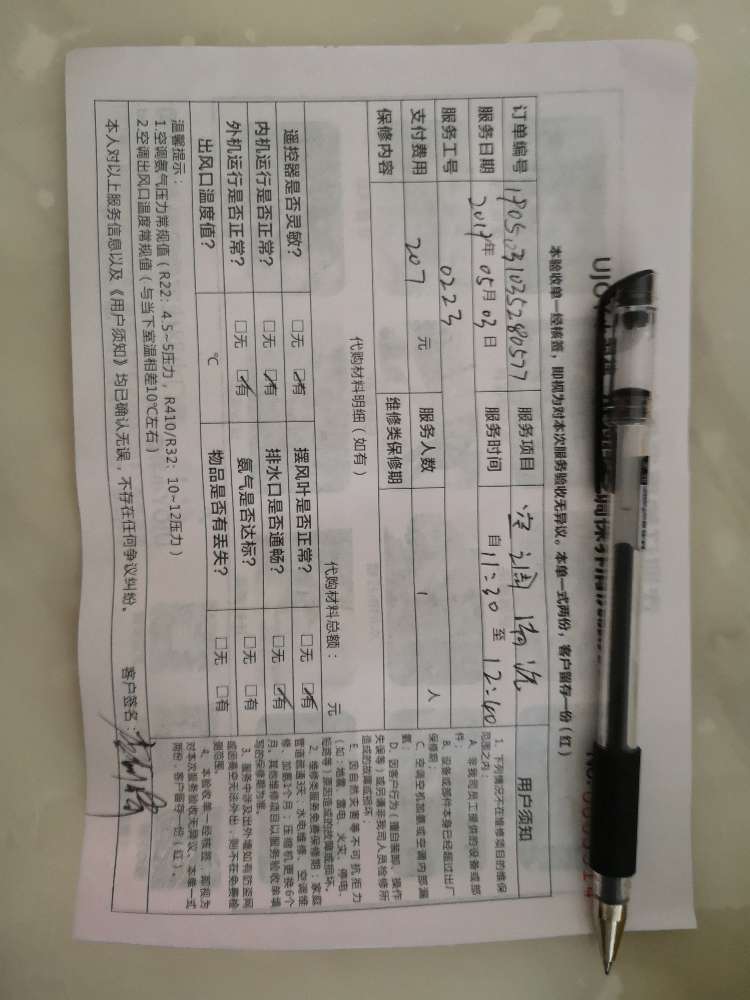 UJO
调保养清洗
本验收单一经核盖，即视为对本次服务验收无异议。本单一式两份，客户留存一份（红）
订单编号 180503103528057​7 服务项目 空调清洗
服务日期 2018年05月03日 服务时间 自11:30至12:40
服务工号 0223
支付费用 207 元 服务人数 1 人
保修内容 维修类保修期
代购材料明细（如有） 代购材料总额： 元
遥控器是否灵敏？ □无 ☑有 摆风叶是否正常？ □无 ☑有
内机运行是否正常？ □无 ☑有 排水口是否通畅？ □无 ☑有
外机运行是否正常？ □无 ☑有 氨气是否达标？ □无 □有
出风口温度值？ ℃ 物品是否有丢失？ □无 □有
温馨提示：
1.空调氨气压力常规值（R22：4.5~5压力，R410/R32：10~12压力）
2.空调出风口温度常规值（与当下室温相差10℃左右）
本人对以上服务信息以及《用户须知》均已确认无误，不存在任何争议纠纷。 客户签名：
用户须知
1、下列情况不在维修项目的维保
范围之内：
A、非我司员工提供的设备或部
件；
B、设备或部件本身已经超过出厂
保修期；
C、空调空机加氨或空调内部漏
氨；
D、因客户行为（擅自装卸、操作
失误等）或另请非我司人员检修所
造成的故障或损坏；
E、因自然灾害等不可抗拒力
（如：地震、雷电、火灾、停电、
短路等）原因造成的故障或损坏。
2、维修类服务免费保修期：家庭
管道疏通3天，水电维修、空调维
修、加氨1个月；压缩机更换6个
月。其他维修项目以服务验收单填
写的保修期为准。
3、服务中涉及出外墙如有防盗网
或因高空无法外出，则不在免费检
测范围。
4、本验收单一经核盖，即视为
对本次服务验收无异议。本单一式
两份，客户留存一份（红）。